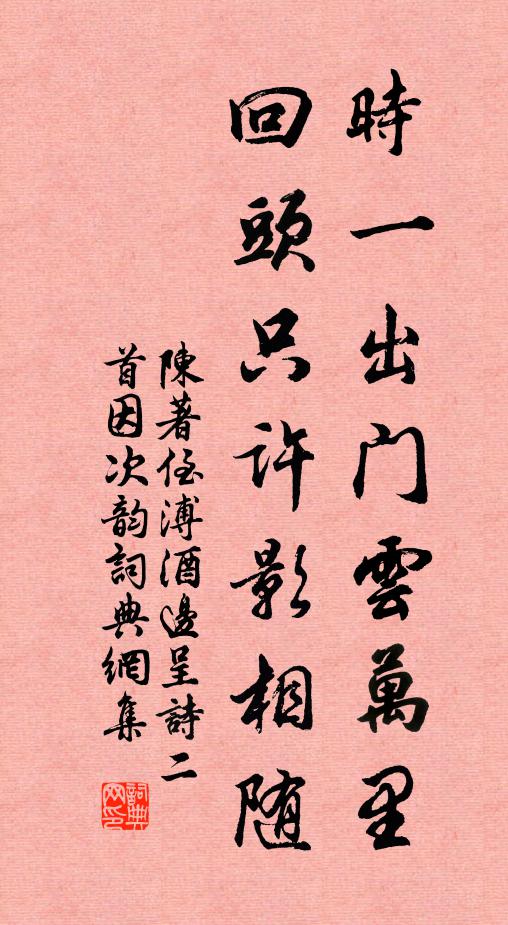 時一出门雲萬里
回頭只许影相随
陳著侄溥酒邊呈詩二
首因次韵詞典網集
詞典网印